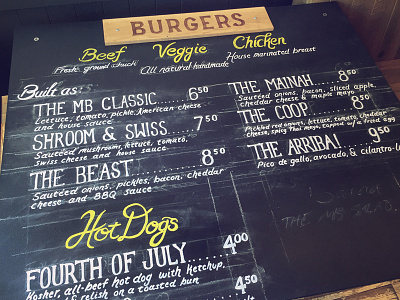 BURGERS
Beef Veggie Chicken
Fresh ground chuck All natural handmade House marinated breast
Built as:
THE MB CLASSIC 6.50
Lettuce, tomato, pickle, American cheese
and house sauce
SHROOM & SWISS 7.50
Sautéed mushrooms, lettuce, tomato,
Swiss cheese and house sauce
THE BEAST 8.50
Sautéed onions, pickles, bacon, cheddar
cheese and BBQ sauce
THE MAINAH 8.50
Sautéed onions, bacon, sliced apple,
cheddar cheese & maple mayo
THE COOP 8.50
Pickled red onions, lettuce, tomato, cheddar
cheese, spicy Thai mayo, topped w/ a fried egg
THE ARRIBA! 9.50
Pico de gallo, avocado, & cilantro-
Hot Dogs
FOURTH OF JULY 4.00
Kosher, all-beef hot dog with Ketchup,
& relish on a toasted bun
4.50
THE MB